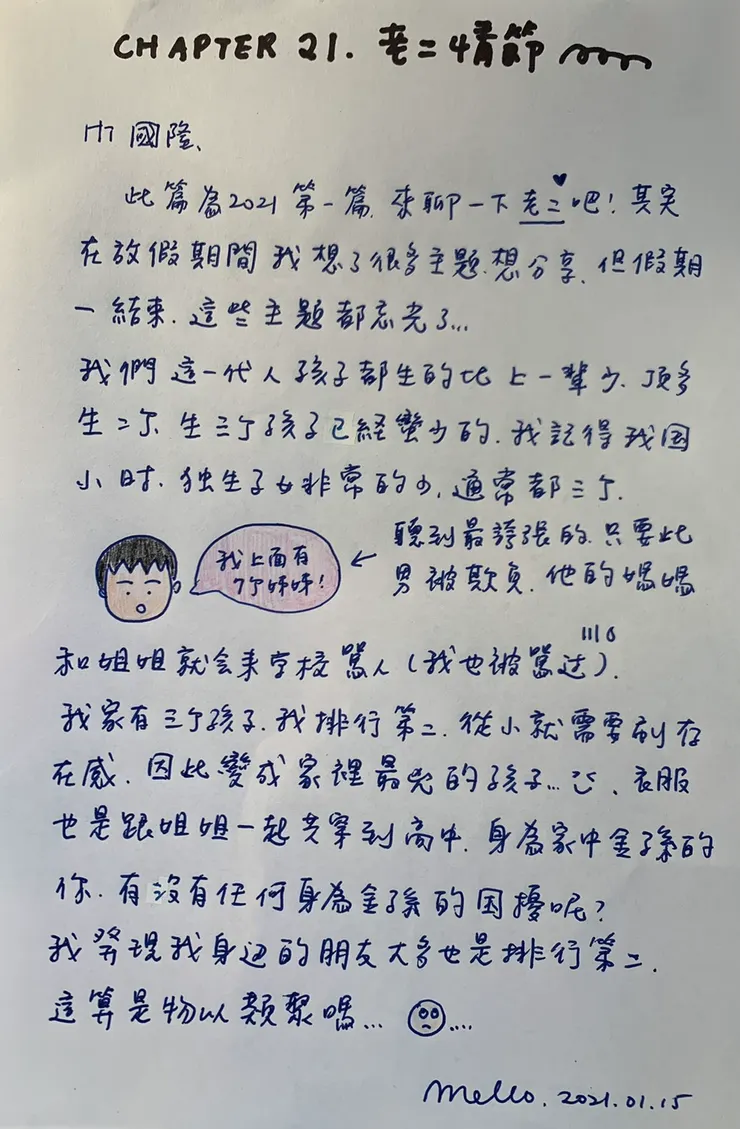 CHAPTER 21. 老二情節
Hi 國隆、
此篇為2021 第一篇. 來聊一下老二吧! 其实
在放假期間我想了很多主題.想分享. 但假期
一結束. 這些主題都忘光了...
我們這一代人孩子都生的比上一輩少. 顶多
生二个. 生三个孩子已経蠻少的. 我記得我国
小时. 独生子女非常的少. 通常都三个.
我上面有
7个姊姊!
← 聽到最誇張的. 只要此
男被欺負. 他的媽媽
和姐姐就会来学校罵人 (我也被罵过).
我家有三个孩子. 我排行第二. 從小就需要刷存
在感. 因此變成家裡最兇的孩子... 、衣服
也是跟姐姐一起共穿到高中. 身為家中金孫的
你. 有沒有任何身為金孫的困擾呢?
我発現我身边的朋友大多也是排行第二.
這算是物以類聚嗎... ....
mello. 2021.01.15